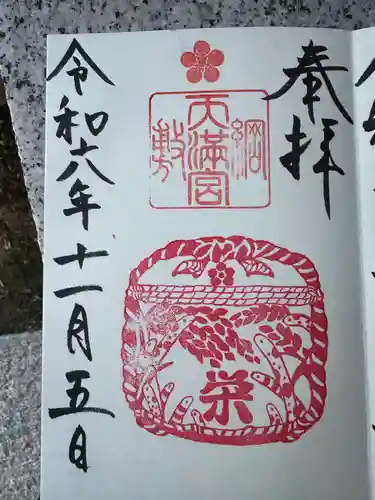 奉拝
綱敷
天満宮
栄
令和六年十一月五日